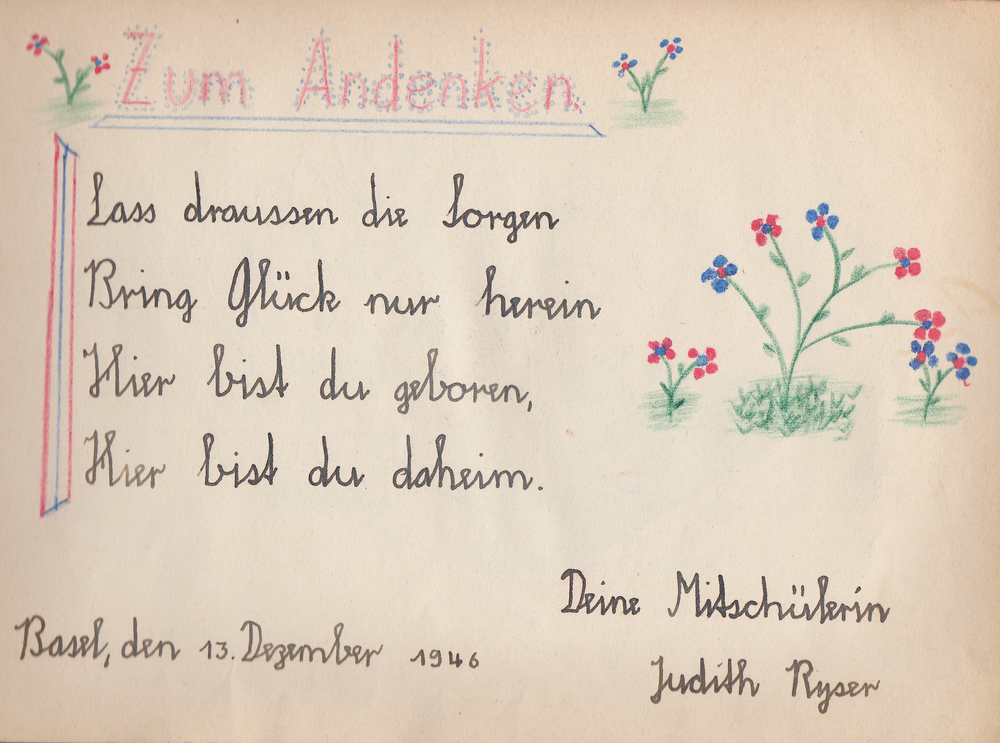 Zum Andenken.
Lass draussen die Sorgen
Bring Glück nur herein
Hier bist du geboren,
Hier bist du daheim.
Deine Mitschülerin
Basel, den 13. Dezember 1946
Judith Ryser